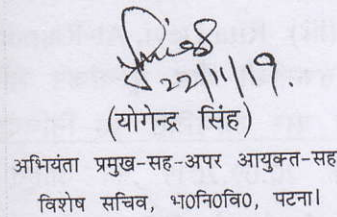 22/11/9.
(योगेन्द्र सिंह)
अभियंता प्रमुख-सह-अपर आयुक्त-सह
विशेष सचिव, भ०नि०वि०, पटना।